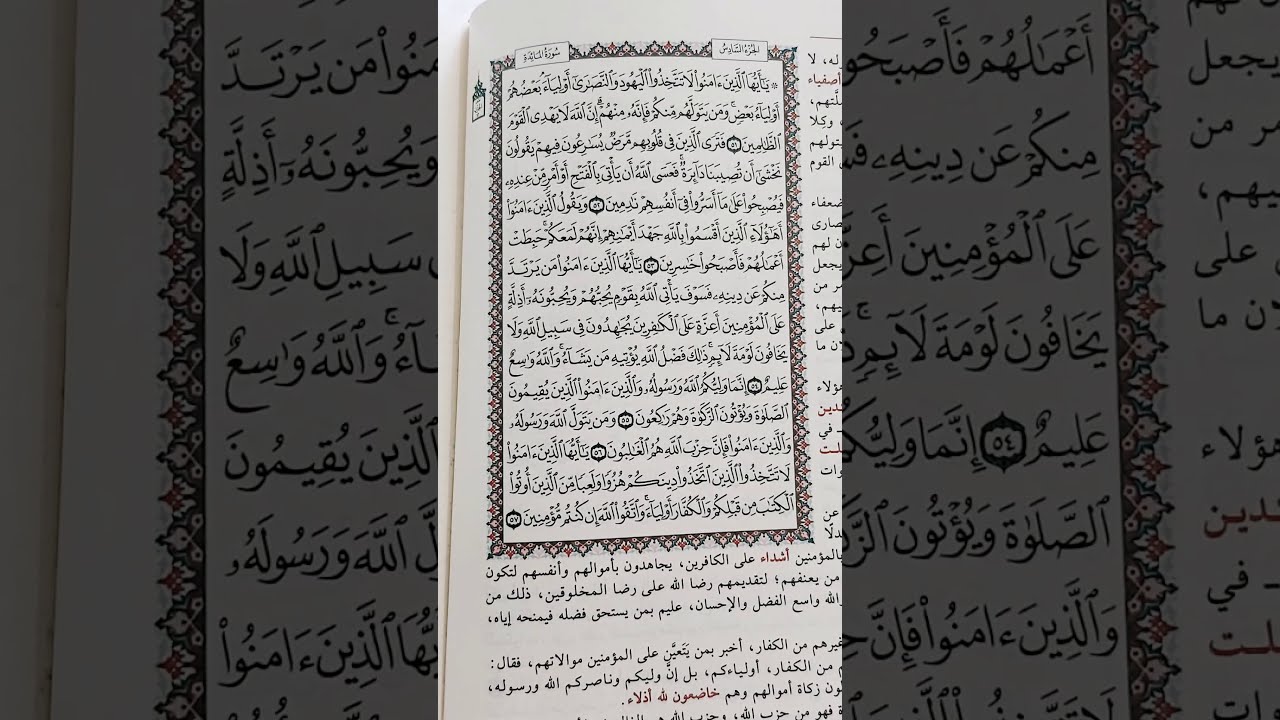 الجزء السادس
سورة المائدة
۞ يَٰٓأَيُّهَا ٱلَّذِينَ ءَامَنُوا۟ لَا تَتَّخِذُوا۟ ٱلْيَهُودَ وَٱلنَّصَٰرَىٰٓ أَوْلِيَآءَ بَعْضُهُمْ
أَوْلِيَآءُ بَعْضٍ وَمَن يَتَوَلَّهُم مِّنكُمْ فَإِنَّهُۥ مِنْهُمْ إِنَّ ٱللَّهَ لَا يَهْدِى ٱلْقَوْمَ
ٱلظَّٰلِمِينَ ٥١ فَتَرَى ٱلَّذِينَ فِى قُلُوبِهِم مَّرَضٌ يُسَٰرِعُونَ فِيهِمْ يَقُولُونَ
نَخْشَىٰٓ أَن تُصِيبَنَا دَآئِرَةٌ فَعَسَى ٱللَّهُ أَن يَأْتِىَ بِٱلْفَتْحِ أَوْ أَمْرٍ مِّنْ عِندِهِۦ
فَيُصْبِحُوا۟ عَلَىٰ مَآ أَسَرُّوا۟ فِىٓ أَنفُسِهِمْ نَٰدِمِينَ ٥٢ وَيَقُولُ ٱلَّذِينَ ءَامَنُوٓا۟
أَهَٰٓؤُلَآءِ ٱلَّذِينَ أَقْسَمُوا۟ بِٱللَّهِ جَهْدَ أَيْمَٰنِهِمْ إِنَّهُمْ لَمَعَكُمْ حَبِطَتْ
أَعْمَٰلُهُمْ فَأَصْبَحُوا۟ خَٰسِرِينَ ٥٣ يَٰٓأَيُّهَا ٱلَّذِينَ ءَامَنُوا۟ مَن يَرْتَدَّ
مِنكُمْ عَن دِينِهِۦ فَسَوْفَ يَأْتِى ٱللَّهُ بِقَوْمٍ يُحِبُّهُمْ وَيُحِبُّونَهُۥٓ أَذِلَّةٍ
عَلَى ٱلْمُؤْمِنِينَ أَعِزَّةٍ عَلَى ٱلْكَٰفِرِينَ يُجَٰهِدُونَ فِى سَبِيلِ ٱللَّهِ وَلَا
يَخَافُونَ لَوْمَةَ لَآئِمٍ ذَٰلِكَ فَضْلُ ٱللَّهِ يُؤْتِيهِ مَن يَشَآءُ وَٱللَّهُ وَٰسِعٌ
عَلِيمٌ ٥٤ إِنَّمَا وَلِيُّكُمُ ٱللَّهُ وَرَسُولُهُۥ وَٱلَّذِينَ ءَامَنُوا۟ ٱلَّذِينَ يُقِيمُونَ
ٱلصَّلَوٰةَ وَيُؤْتُونَ ٱلزَّكَوٰةَ وَهُمْ رَٰكِعُونَ ٥٥ وَمَن يَتَوَلَّ ٱللَّهَ وَرَسُولَهُۥ
وَٱلَّذِينَ ءَامَنُوا۟ فَإِنَّ حِزْبَ ٱللَّهِ هُمُ ٱلْغَٰلِبُونَ ٥٦ يَٰٓأَيُّهَا ٱلَّذِينَ ءَامَنُوا۟
لَا تَتَّخِذُوا۟ ٱلَّذِينَ ٱتَّخَذُوا۟ دِينَكُمْ هُزُوًا وَلَعِبًا مِّنَ ٱلَّذِينَ أُوتُوا۟
ٱلْكِتَٰبَ مِن قَبْلِكُمْ وَٱلْكُفَّارَ أَوْلِيَآءَ وَٱتَّقُوا۟ ٱللَّهَ إِن كُنتُم مُّؤْمِنِينَ ٥٧
بالمؤمنين أشداء على الكافرين، يجاهدون بأموالهم وأنفسهم لتكون
من يعنفهم؛ لتقديمهم رضا الله على رضا المخلوقين، ذلك من
والله واسع الفضل والإحسان، عليم بمن يستحق فضله فيمنحه إياه،
غيرهم من الكفار، أخبر بمن يتعيَّن على المؤمنين موالاتهم، فقال:
م من الكفار، أولياءكم، بل إنَّ وليكم وناصركم الله ورسوله،
ون زكاة أموالهم وهم خاضعون لله أذلاء.
ة فهو من حزب الله، وحزب الله هم